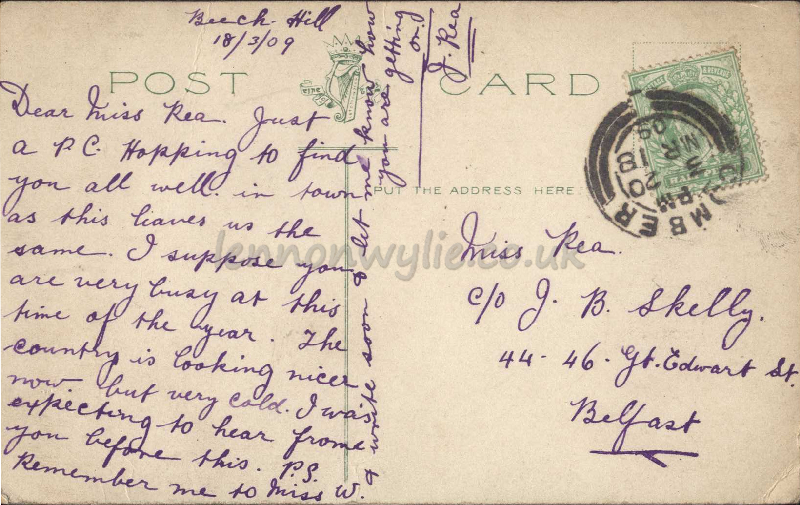 Beech Hill
18/3/09
POST CARD
Dear Miss Rea. Just
a P.C. Hopping to find
you all well in town
as this leaves us the
same. I suppose you
are very busy at this
time of the year. The
country is looking nicer
now but very cold. I was
expecting to hear frome
you before this. P.S.
Remember me to Miss W.
& write soon & let me know how
you are getting
on.
J. Rea
PUT THE ADDRESS HERE
Miss Rea.
c/o J. B. Skelly.
44-46- Gt. Edwart St.
Belfast
COMBER
PM
18
09
lennonwylie.co.uk